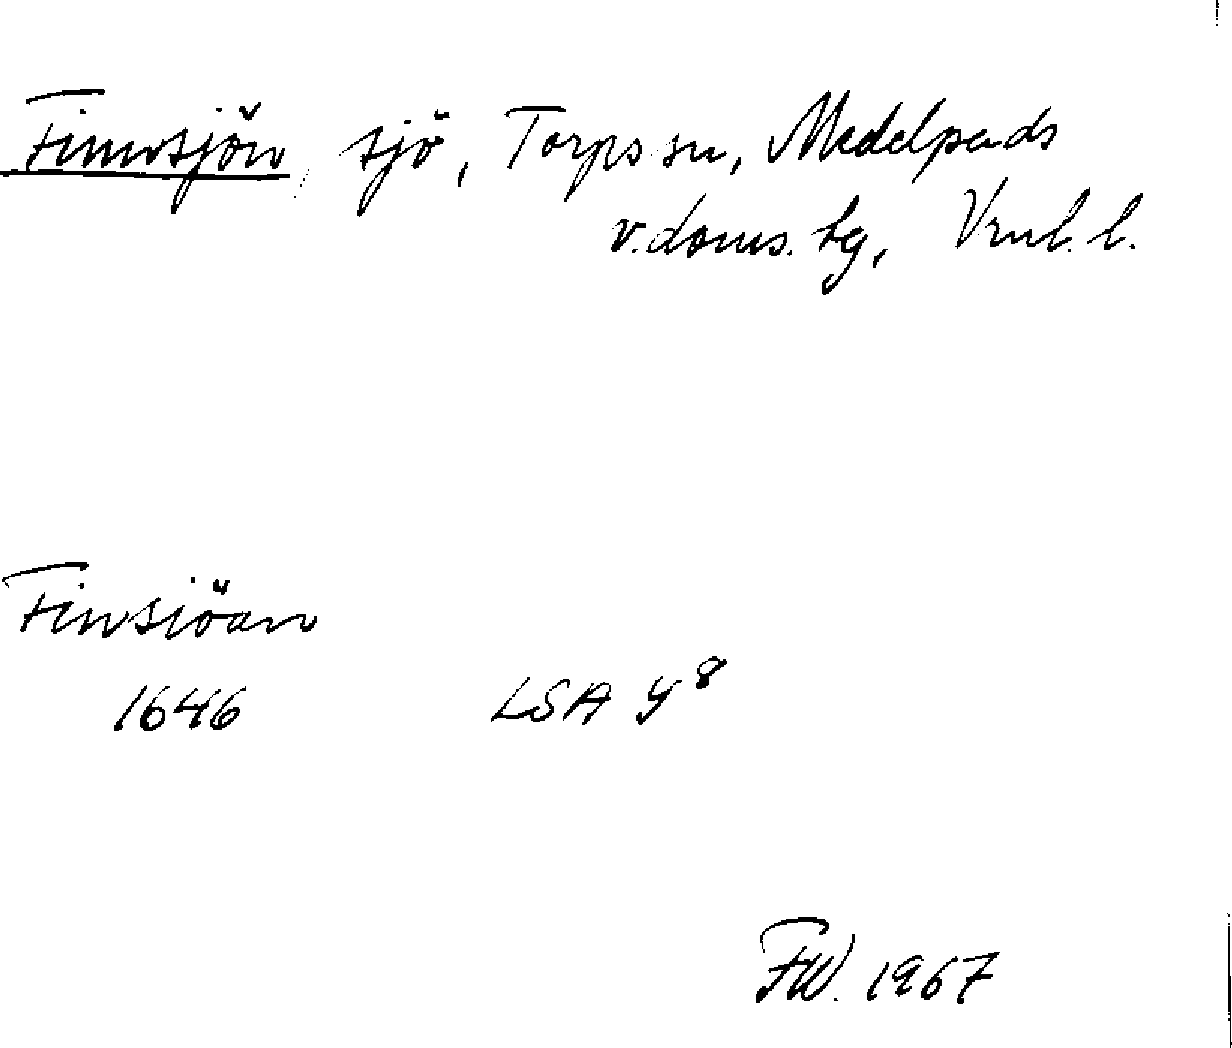 Finnsjön, sjö, Torps sn, Medelpads
v. doms. tg, Vnl. l.
Finsiöan
1646 LSA Y 8
FW. 1967